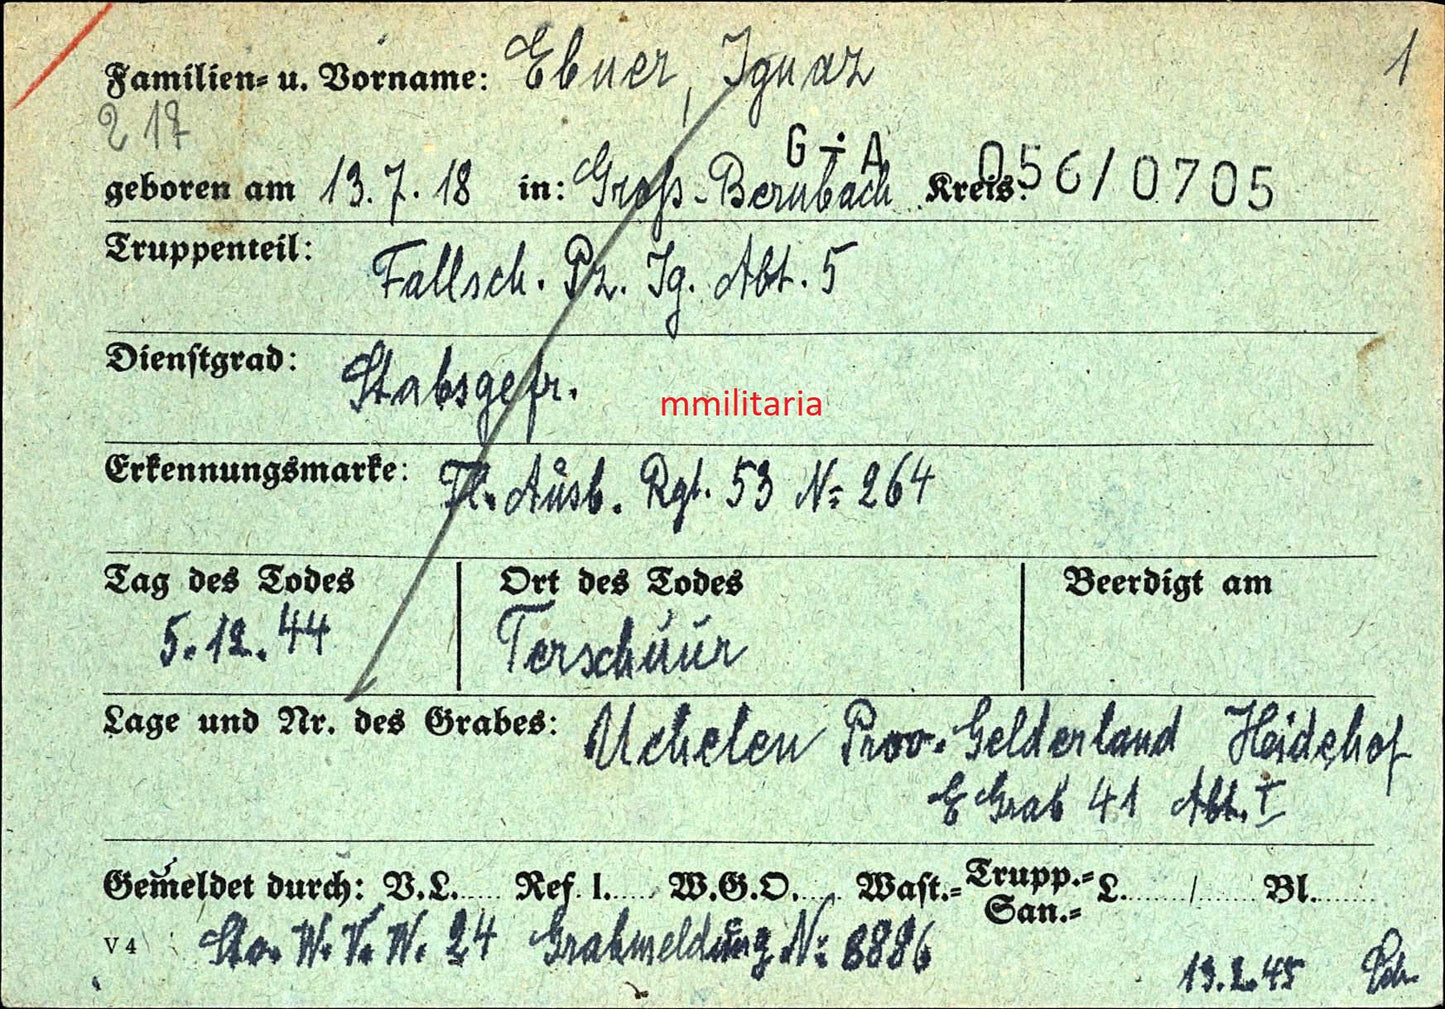 1
Familien- u. Vorname: Ebner, Ignaz
2 17
G ÷ A
geboren am 13.7.18 in: Groß-Bernbach Kreis: 056/0705
Truppenteil: Fallsch. Pz. Jg. Abt. 5
Dienstgrad: Stabsgefr.
mmilitaria
Erkennungsmarke: Fl. Ausb. Rgt. 53 N= 264
Tag des Todes Ort des Todes Beerdigt am
5.12.44 Terschuur
Lage und Nr. des Grabes: Uchelen Prov. Gelderland Heidehof
E Grab 41 Abt. I
Gemeldet durch: V.L..... Ref. I..... W.G.O..... Wast.= Trupp.= San.= L......./...... Bl.......
V 4 Sta. W. V. W. 24 Grabmeldung N= 8886
13.2.45